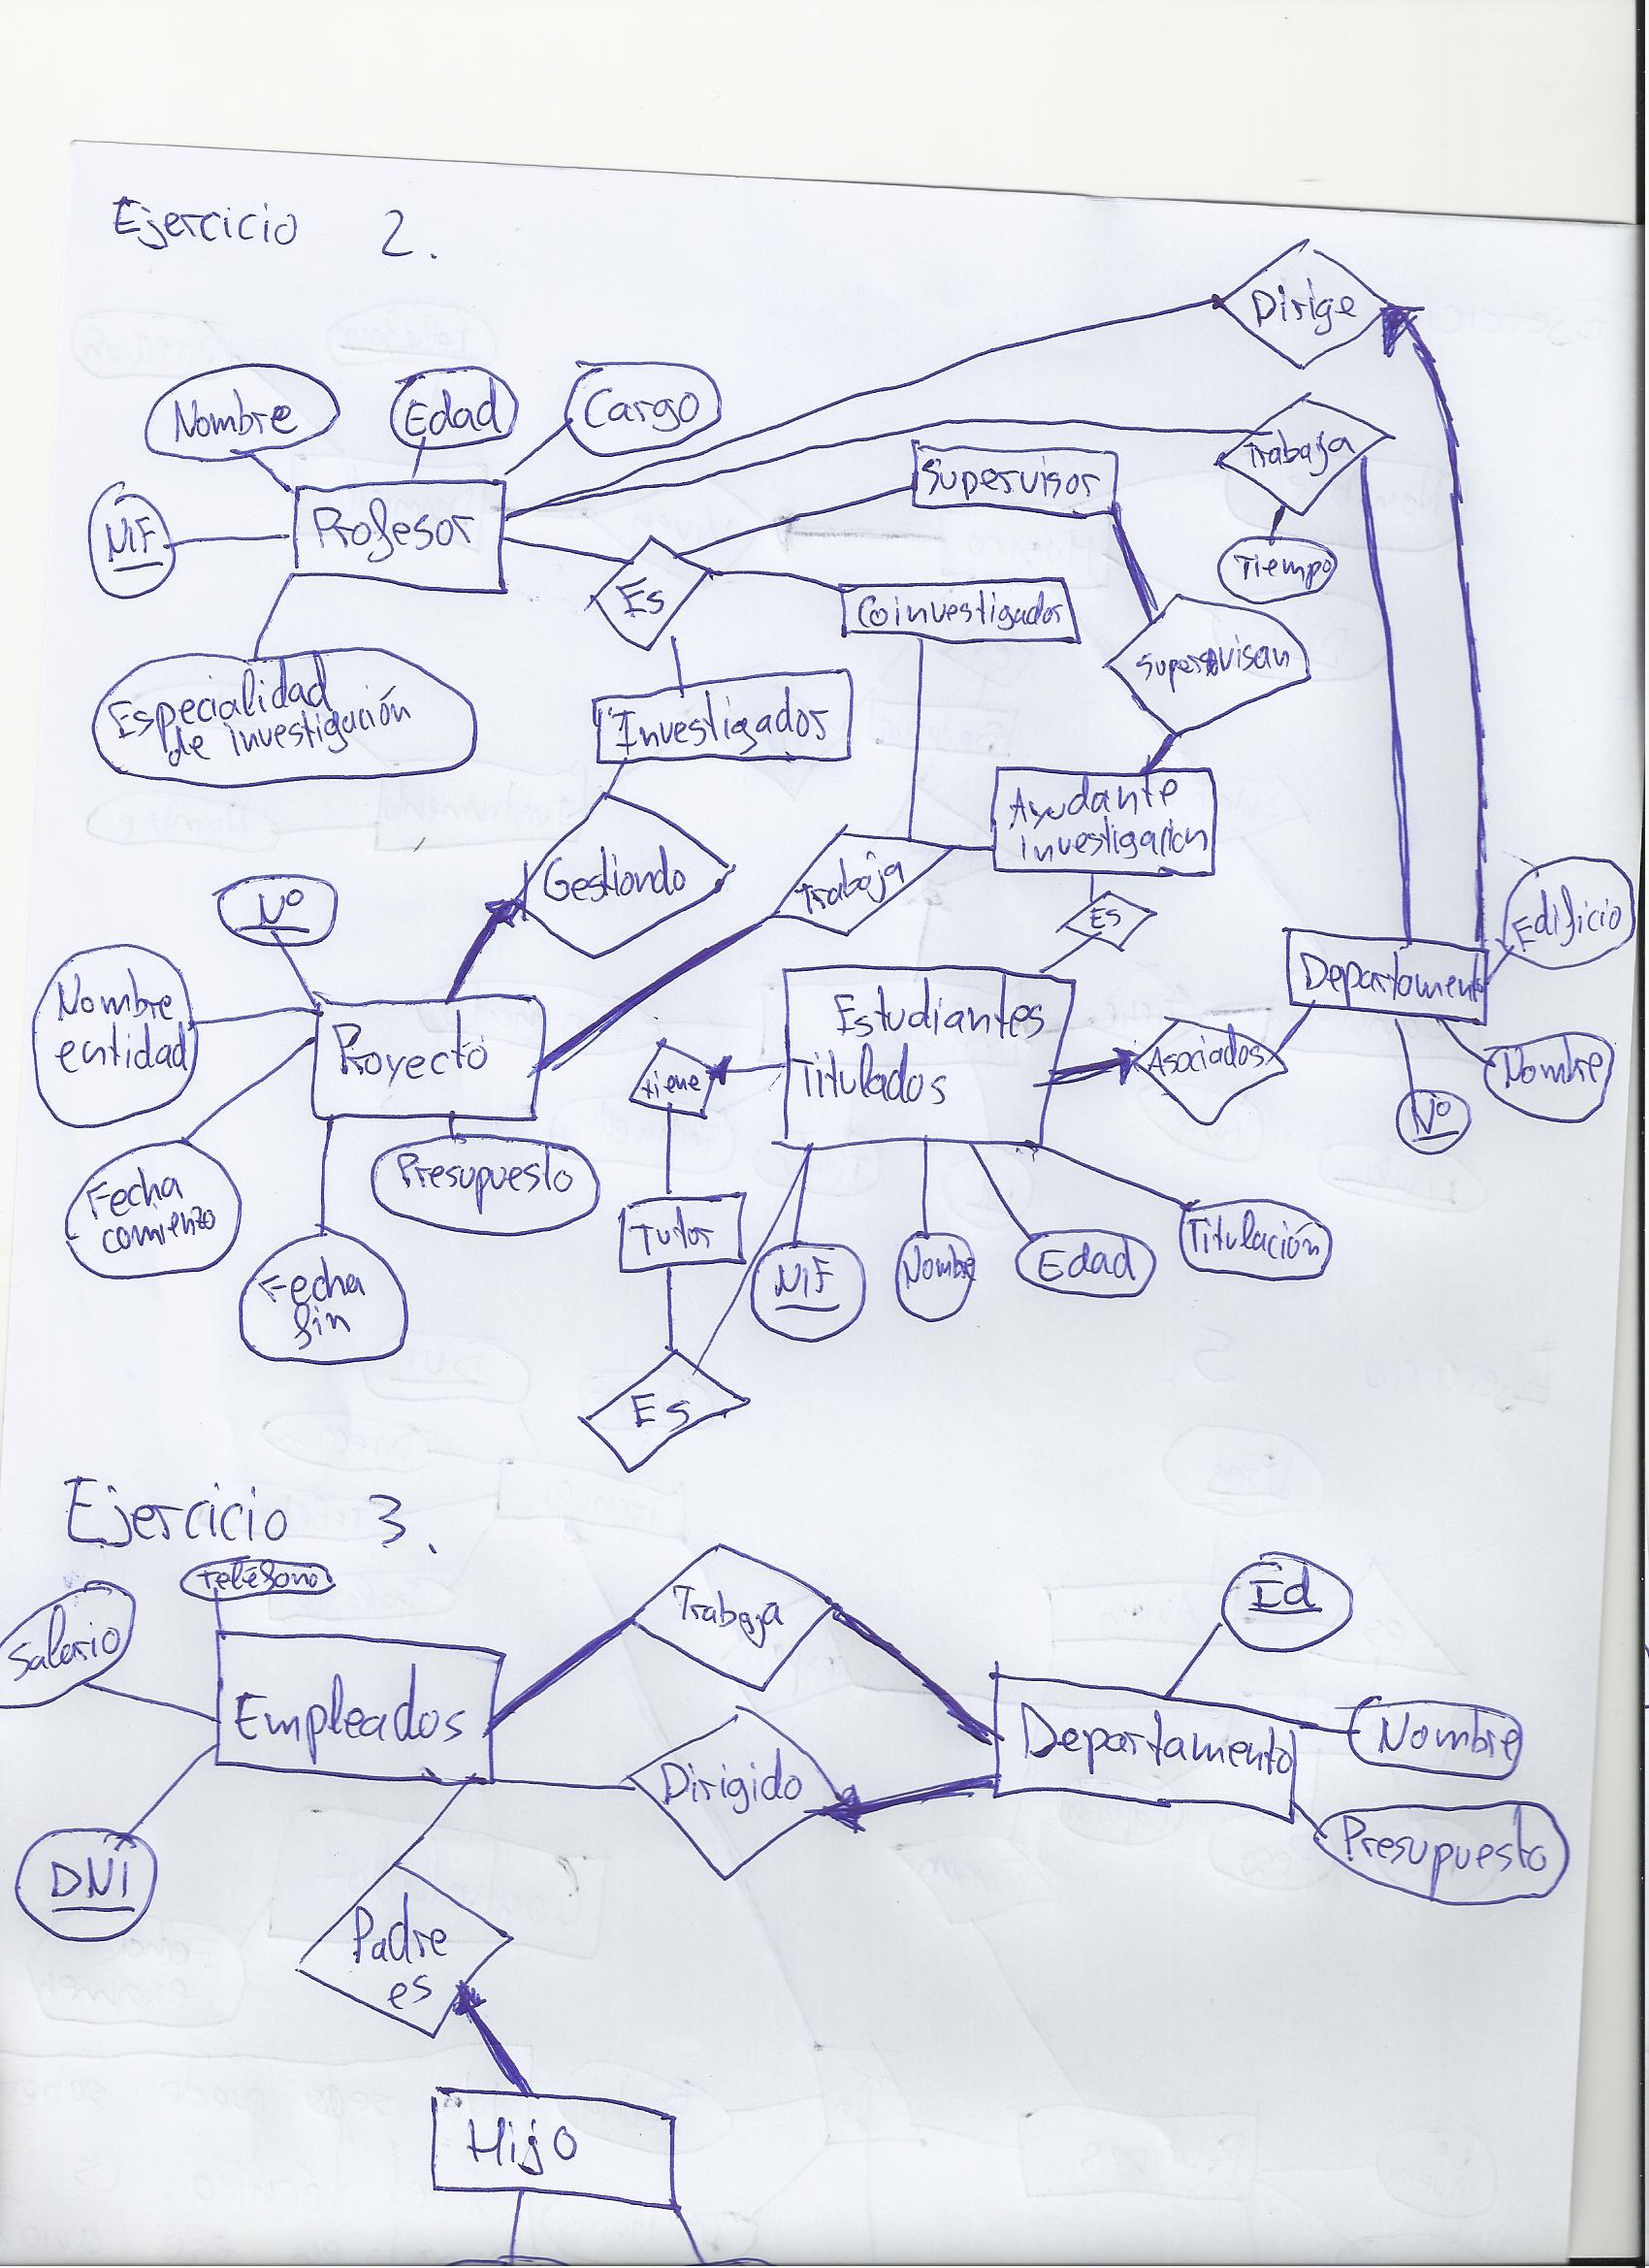 Ejercicio 2.
Dirige
Nombre
Edad
Cargo
Trabaja
Supervisor
NIF
Profesor
Tiempo
Es
Coinvestigador
Supervisan
Especialidad
de investigación
Investigador
Ayudante
investigacion
Gestiondo
Trabaja
Nº
Es
Edificio
Departamento
Nombre
entidad
Proyecto
Estudiantes
Titulados
tiene
Asociados
Nombre
Nº
Presupuesto
Fecha
comienzo
Tutor
Titulación
NIF
Nombre
Edad
Fecha
fin
Es
Ejercicio 3.
Teléfono
Salario
Trabaja
Ed
Empleados
Departamento
Nombre
Dirigido
Presupuesto
DNI
Padre
es
Hijo